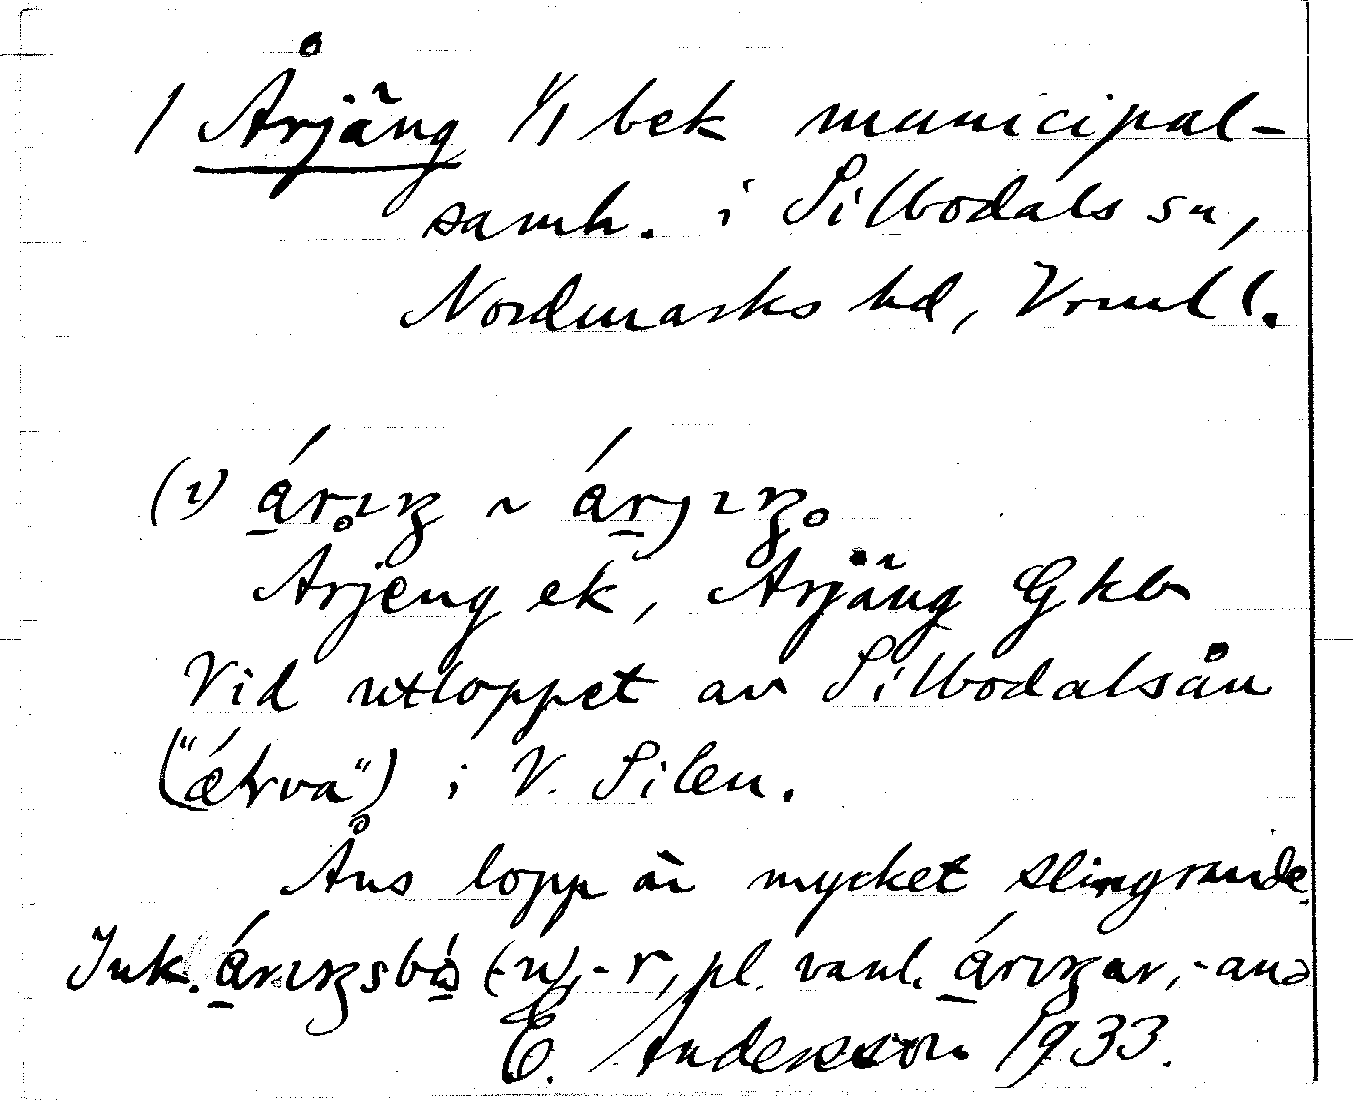 1 Årjäng 1/1 bek municipal-
samh. i Silbodals sn,
Nordmarks hd, Vrml l.
(i)
Årjeng ek, Årjäng Gkb
Vid utloppet av Silbodalsån
i V. Silen.
Åns lopp är mycket slingrande
Ink. (-n), -r, pl. vanl.
E. Andersson 1933.